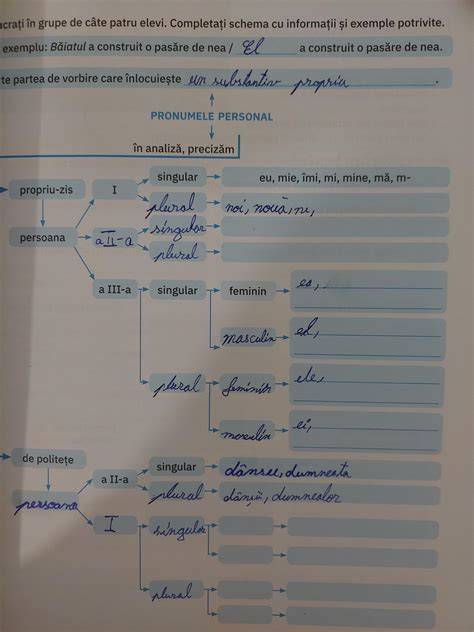 ucrați în grupe de câte patru elevi. Completați schema cu informații și exemple potrivite.
exemplu: Băiatul a construit o pasăre de nea / El a construit o pasăre de nea.
te partea de vorbire care înlocuiește un substantiv propriu.
PRONUMELE PERSONAL
în analiză, precizăm
propriu-zis
I
singular
eu, mie, îmi, mi, mine, mă, m-
plural
noi, nouă, ni,
persoana
a II-a
singular
plural
a III-a
singular
feminin
ea,
masculin
el,
plural
feminin
ele,
masculin
ei,
de politețe
a II-a
singular
dânsei, dumneata
persoana
plural
dânșii, dumnealor
I
singular
plural